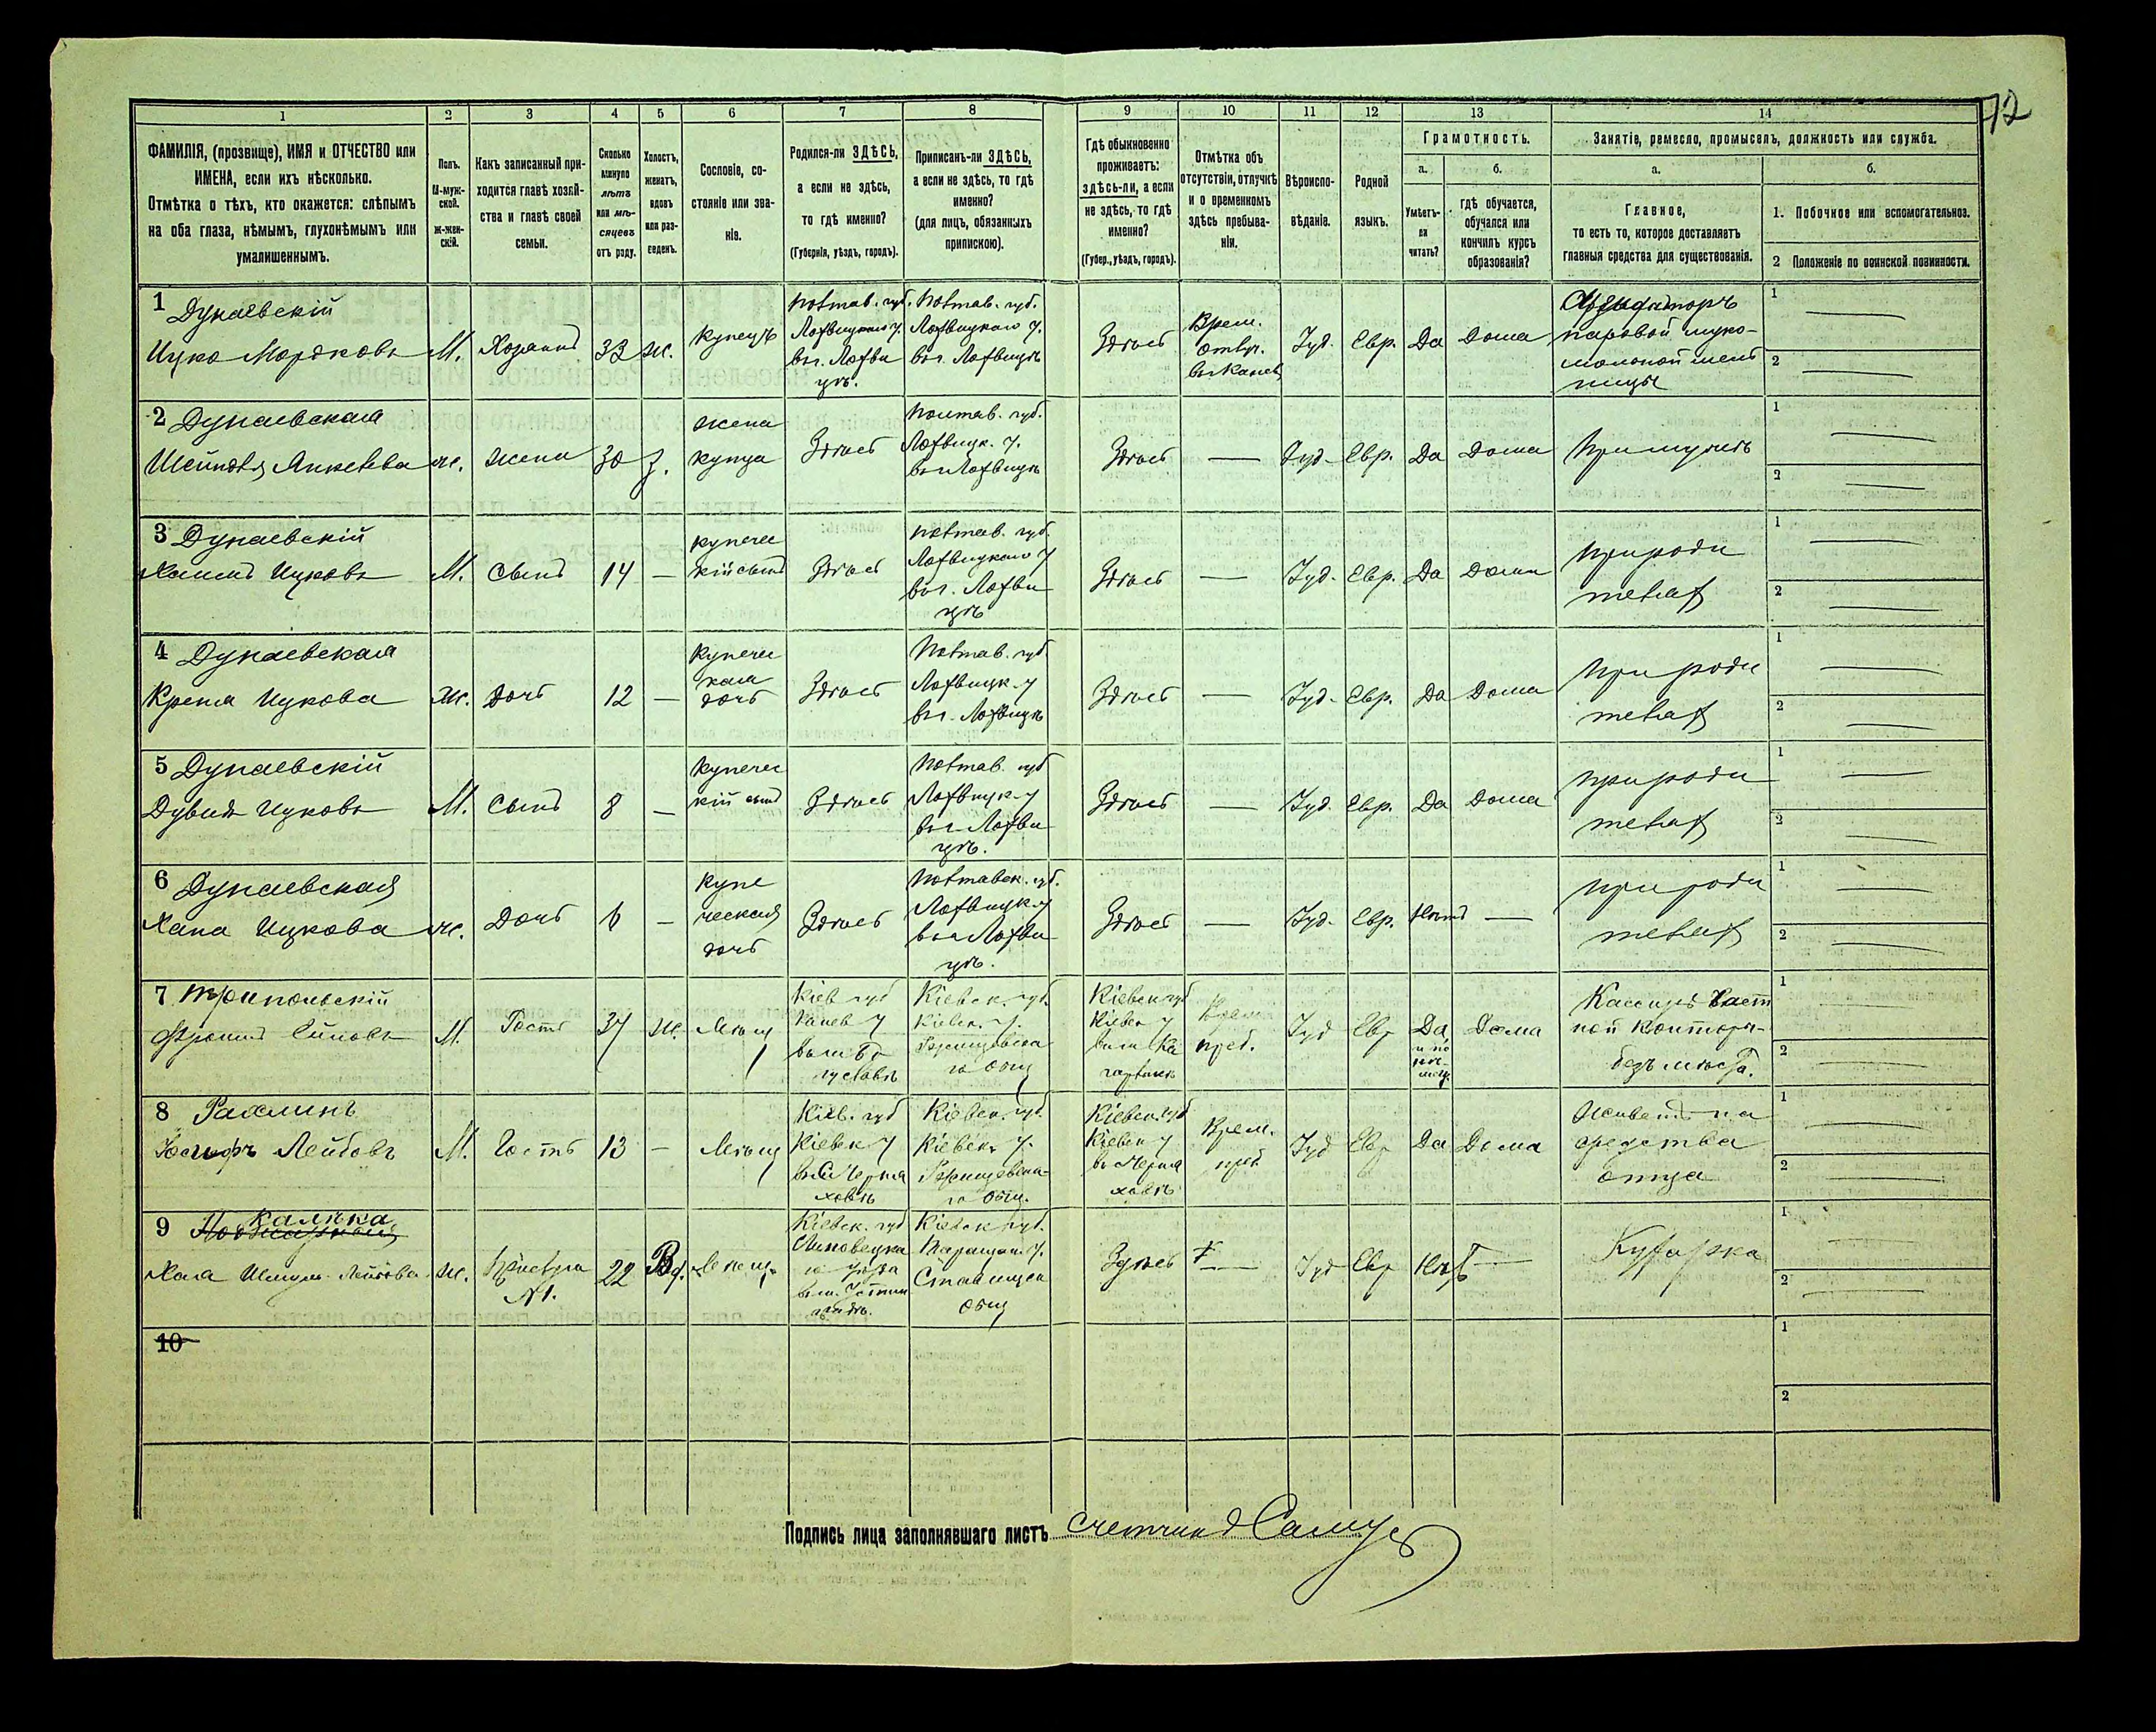 72
1 2 3 4 5 6 7 8 9 10 11 12 13 14
ФАМИЛІЯ, (прозвище), ИМЯ и ОТЧЕСТВО или
ИМЕНА, если ихъ нѣсколько.
Отмѣтка о тѣхъ, кто окажется: слѣпымъ
на оба глаза, нѣмымъ, глухонѣмымъ или
умалишеннымъ.
Полъ.
М-муж-
ской.
Ж-жен-
скій.
Какъ записанный при-
ходится главѣ хозяй-
ства и главѣ своей
семьи.
Сколько
минуло
лѣтъ
или мѣ-
сяцевъ
отъ роду.
Холостъ,
женатъ,
вдовъ
или раз-
веденъ.
Сословіе, со-
стояніе или зва-
ніе.
Родился-ли ЗДѢСЬ,
а если не здѣсь,
то гдѣ именно?
(Губернія, уѣздъ, городъ).
Приписанъ-ли ЗДѢСЬ,
а если не здѣсь, то гдѣ
именно?
(для лицъ, обязанныхъ
припискою).
Гдѣ обыкновенно
проживаетъ:
здѣсь-ли, а если
не здѣсь, то гдѣ
именно?
(Губер., уѣздъ, городъ).
Отмѣтка объ
отсутствіи, отлучкѣ
и о временномъ
здѣсь пребыва-
ніи.
Вѣроиспо-
вѣданіе.
Родной
языкъ.
Грамотность.
а. б.
Умѣетъ-
ли
читать?
гдѣ обучается,
обучался или
кончилъ курсъ
образованія?
Занятіе, ремесло, промыселъ, должность или служба.
а. б.
Главное,
то есть то, которое доставляетъ
главныя средства для существованія.
1. Побочное или вспомогательное.
2 Положеніе по воинской повинности.
1 Дунаевскій
Ицко Мордковъ
М. Хозяинъ 33 ж. купецъ
Полтав. губ.
Лохвицкаго у.
въ г. Лохви
цѣ.
Полтав. губ.
Лохвицкаго у.
въ г. Лохвицѣ
Здѣсь
Врем.
отлуч.
въ Каневъ
Іуд. Евр. Да Дома
Арендаторъ
паровой муко-
мольной мель
ницы
1
2
2 Дунаевская
ж. жена 30 З.
жена
купца
Здѣсь
Полтав. губ.
Лохвицк. у.
въ г. Лохвицѣ
Здѣсь — Іуд. Евр. Да Дома При мужѣ
1
2
3 Дунаевскій
Хаимъ Ицковъ
М. Сынъ 14 —
купечес
кій сынъ
Здѣсь
Полтав. губ.
Лохвицкаго у
въ г. Лохви
цѣ
Здѣсь — Іуд. Евр. Да Дома
при роди
теляхъ
1
2
4 Дунаевская
Крейна Ицкова
ж. Дочь 12 —
купечес
кая
дочь
Здѣсь
Полтав. губ.
Лохвицк. у
въ г. Лохвицѣ
Здѣсь — Іуд. Евр. Да Дома
при роди
теляхъ
1
2
5 Дунаевскій
Дувидъ Ицковъ
М. Сынъ 8 —
купечес
кій сынъ
Здѣсь
Полтав. губ
Лохвицк. у
въ г. Лохви
цѣ.
Здѣсь — Іуд. Евр. Да Дома
при роди
теляхъ
1
2
6 Дунаевская
Хана Ицкова
ж. Дочь 6 —
купе
ческая
дочь
Здѣсь
Полтавск. губ.
Лохвицк. у
въ г. Лохви
цѣ.
Здѣсь — Іуд. Евр. Нѣтъ —
при роди
теляхъ
1
2
7 Трипольскій
М. Гость 37 ж. Мѣщ
Кіев губ
Канев у
въ м. Бо
гуславѣ
Кіевск. губ.
Кіевск. у.
Ржищевска
го общ
Кіевск губ
Кіевск у
Врем
преб.
Іуд Евр Да Дома
Кассиръ част
ной конторы-
безъ мѣста.
1
2
8 Рахлинъ
Іосифъ Лейбовъ
М. Гость 13 — Мѣщ
Кіев. губ
Кіевск у
Черня
ховѣ
Кіевск. губ.
Кіевск. у.
Ржищевска-
го общ.
Кіевск. губ
Кіевск у
въ Черня
ховѣ
Врем.
преб
Іуд Евр Да Дома
Живетъ на
средства
отца
1
2
9 Калѣка
Хая Лейбова
ж. Прислуга
№1.
22 Вд. Мѣщ.
Кіевск. губ
Липовецка
го уѣзда
Кіевск губ.
Таращан. у.
Ставищен
общ
Здѣсь — Іуд Евр Нѣтъ — Кухарка
1
2
10
1
2
Подпись лица заполнявшаго листъ счетчикъ